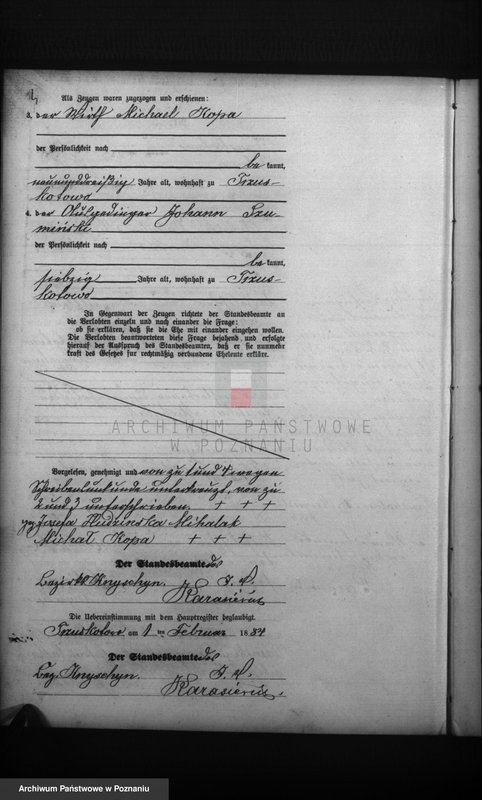 Als Zeugen waren zugezogen und erschienen:
3. der Wirth Michael Kopa
der Persönlichkeit nach
be kannt,
neununddreißig Jahre alt, wohnhaft zu Trzus-
kotowo
4. der Johann Szu-
minski
der Persönlichkeit nach
be kannt,
siebzig Jahre alt, wohnhaft zu Trzus-
kotowo
In Gegenwart der Zeugen richtete der Standesbeamte an
die Verlobten einzeln und nach einander die Frage:
ob sie erklären, daß sie die Ehe mit einander eingehen wollen.
Die Verlobten beantworteten diese Frage bejahend und erfolgte
hierauf der Ausspruch des Standesbeamten, daß er sie nunmehr
kraft des Gesetzes für rechtmäßig verbundene Eheleute erkläre.
ARCHIWUM PAŃSTWOWE
W POZNANIU
Vorgelesen, genehmigt und von zu 1 und 4 wegen
Schreibensunkunde unterkreuzt, von zu
2 und 3 unterschrieben. + + +
gez. Josefa Hudzinska Mihalak
Michał Kopa + + +
Der Standesbeamte des
Bezirks Knyschyn. I. V.
Karasiewicz
Die Uebereinstimmung mit dem Hauptregister beglaubigt.
Trzuskotowo am 1 ten Februar 1884
Der Standesbeamte des
Bez. Knyschyn. I. V.
Karasiewicz.
Archiwum Państwowe w Poznaniu